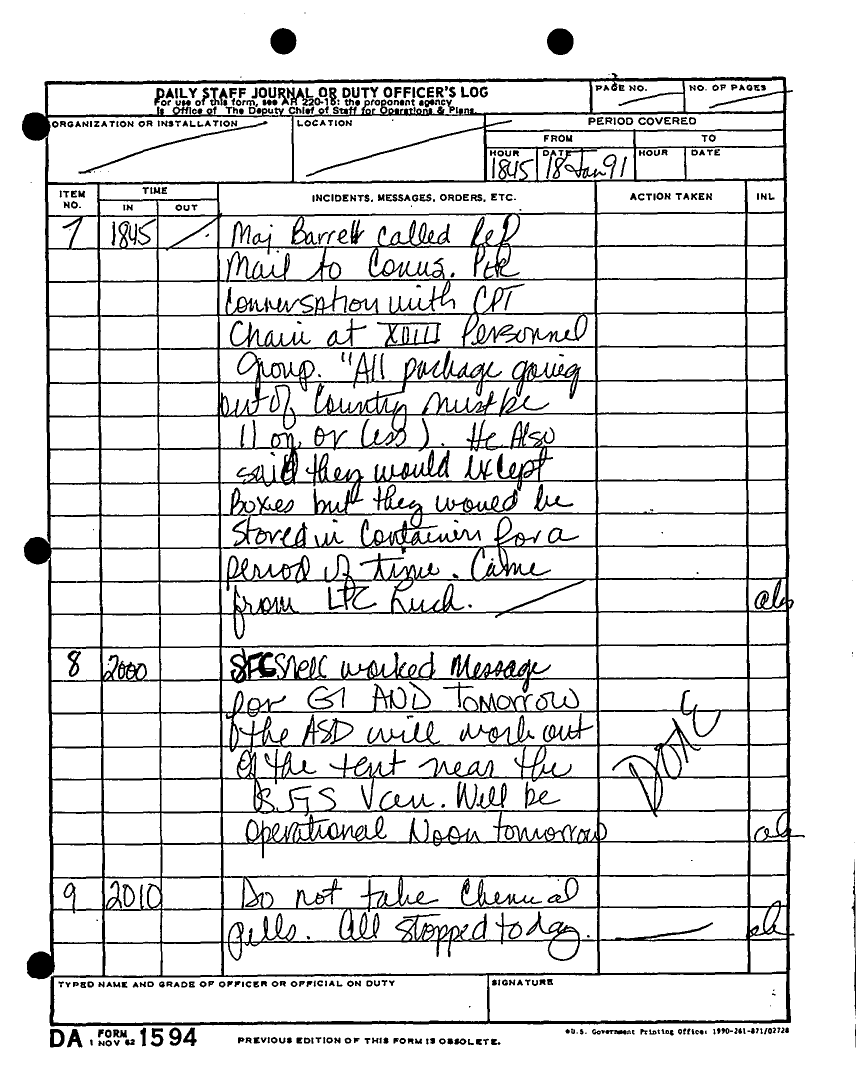 DAILY STAFF JOURNAL OR DUTY OFFICER'S LOG
For use of this form, see AR 220-15; the proponent agency
is Office of The Deputy Chief of Staff for Operations & Plans.
PAGE NO.
NO. OF PAGES
ORGANIZATION OR INSTALLATION
LOCATION
PERIOD COVERED
FROM
TO
HOUR
DATE
HOUR
DATE
1845
18 Jan 91
ITEM NO.
TIME
IN
OUT
INCIDENTS, MESSAGES, ORDERS, ETC.
ACTION TAKEN
INL
7 1845 Maj Barrett called Ref
Mail to Conus. Per
Conversation with CPT
Chain at XVIII Personnel
Group. "All package going
out of Country must be
11 oz or less). He Also
said they would except
Boxes but they would be
Stored in Containers for a
period of time. Came
from LTC
8 2000 SFC Snell worked Message
for G1 AND Tomorrow
the ASD will work out
of the tent near the
SGS Van. Will be
operational Noon tomorrow
DONE
9 2010 Do not take Chemical
pills. All stopped today.
TYPED NAME AND GRADE OF OFFICER OR OFFICIAL ON DUTY
SIGNATURE
DA FORM 1 NOV 62 1594
PREVIOUS EDITION OF THIS FORM IS OBSOLETE.
U.S. Government Printing Office: 1990-261-871/02728